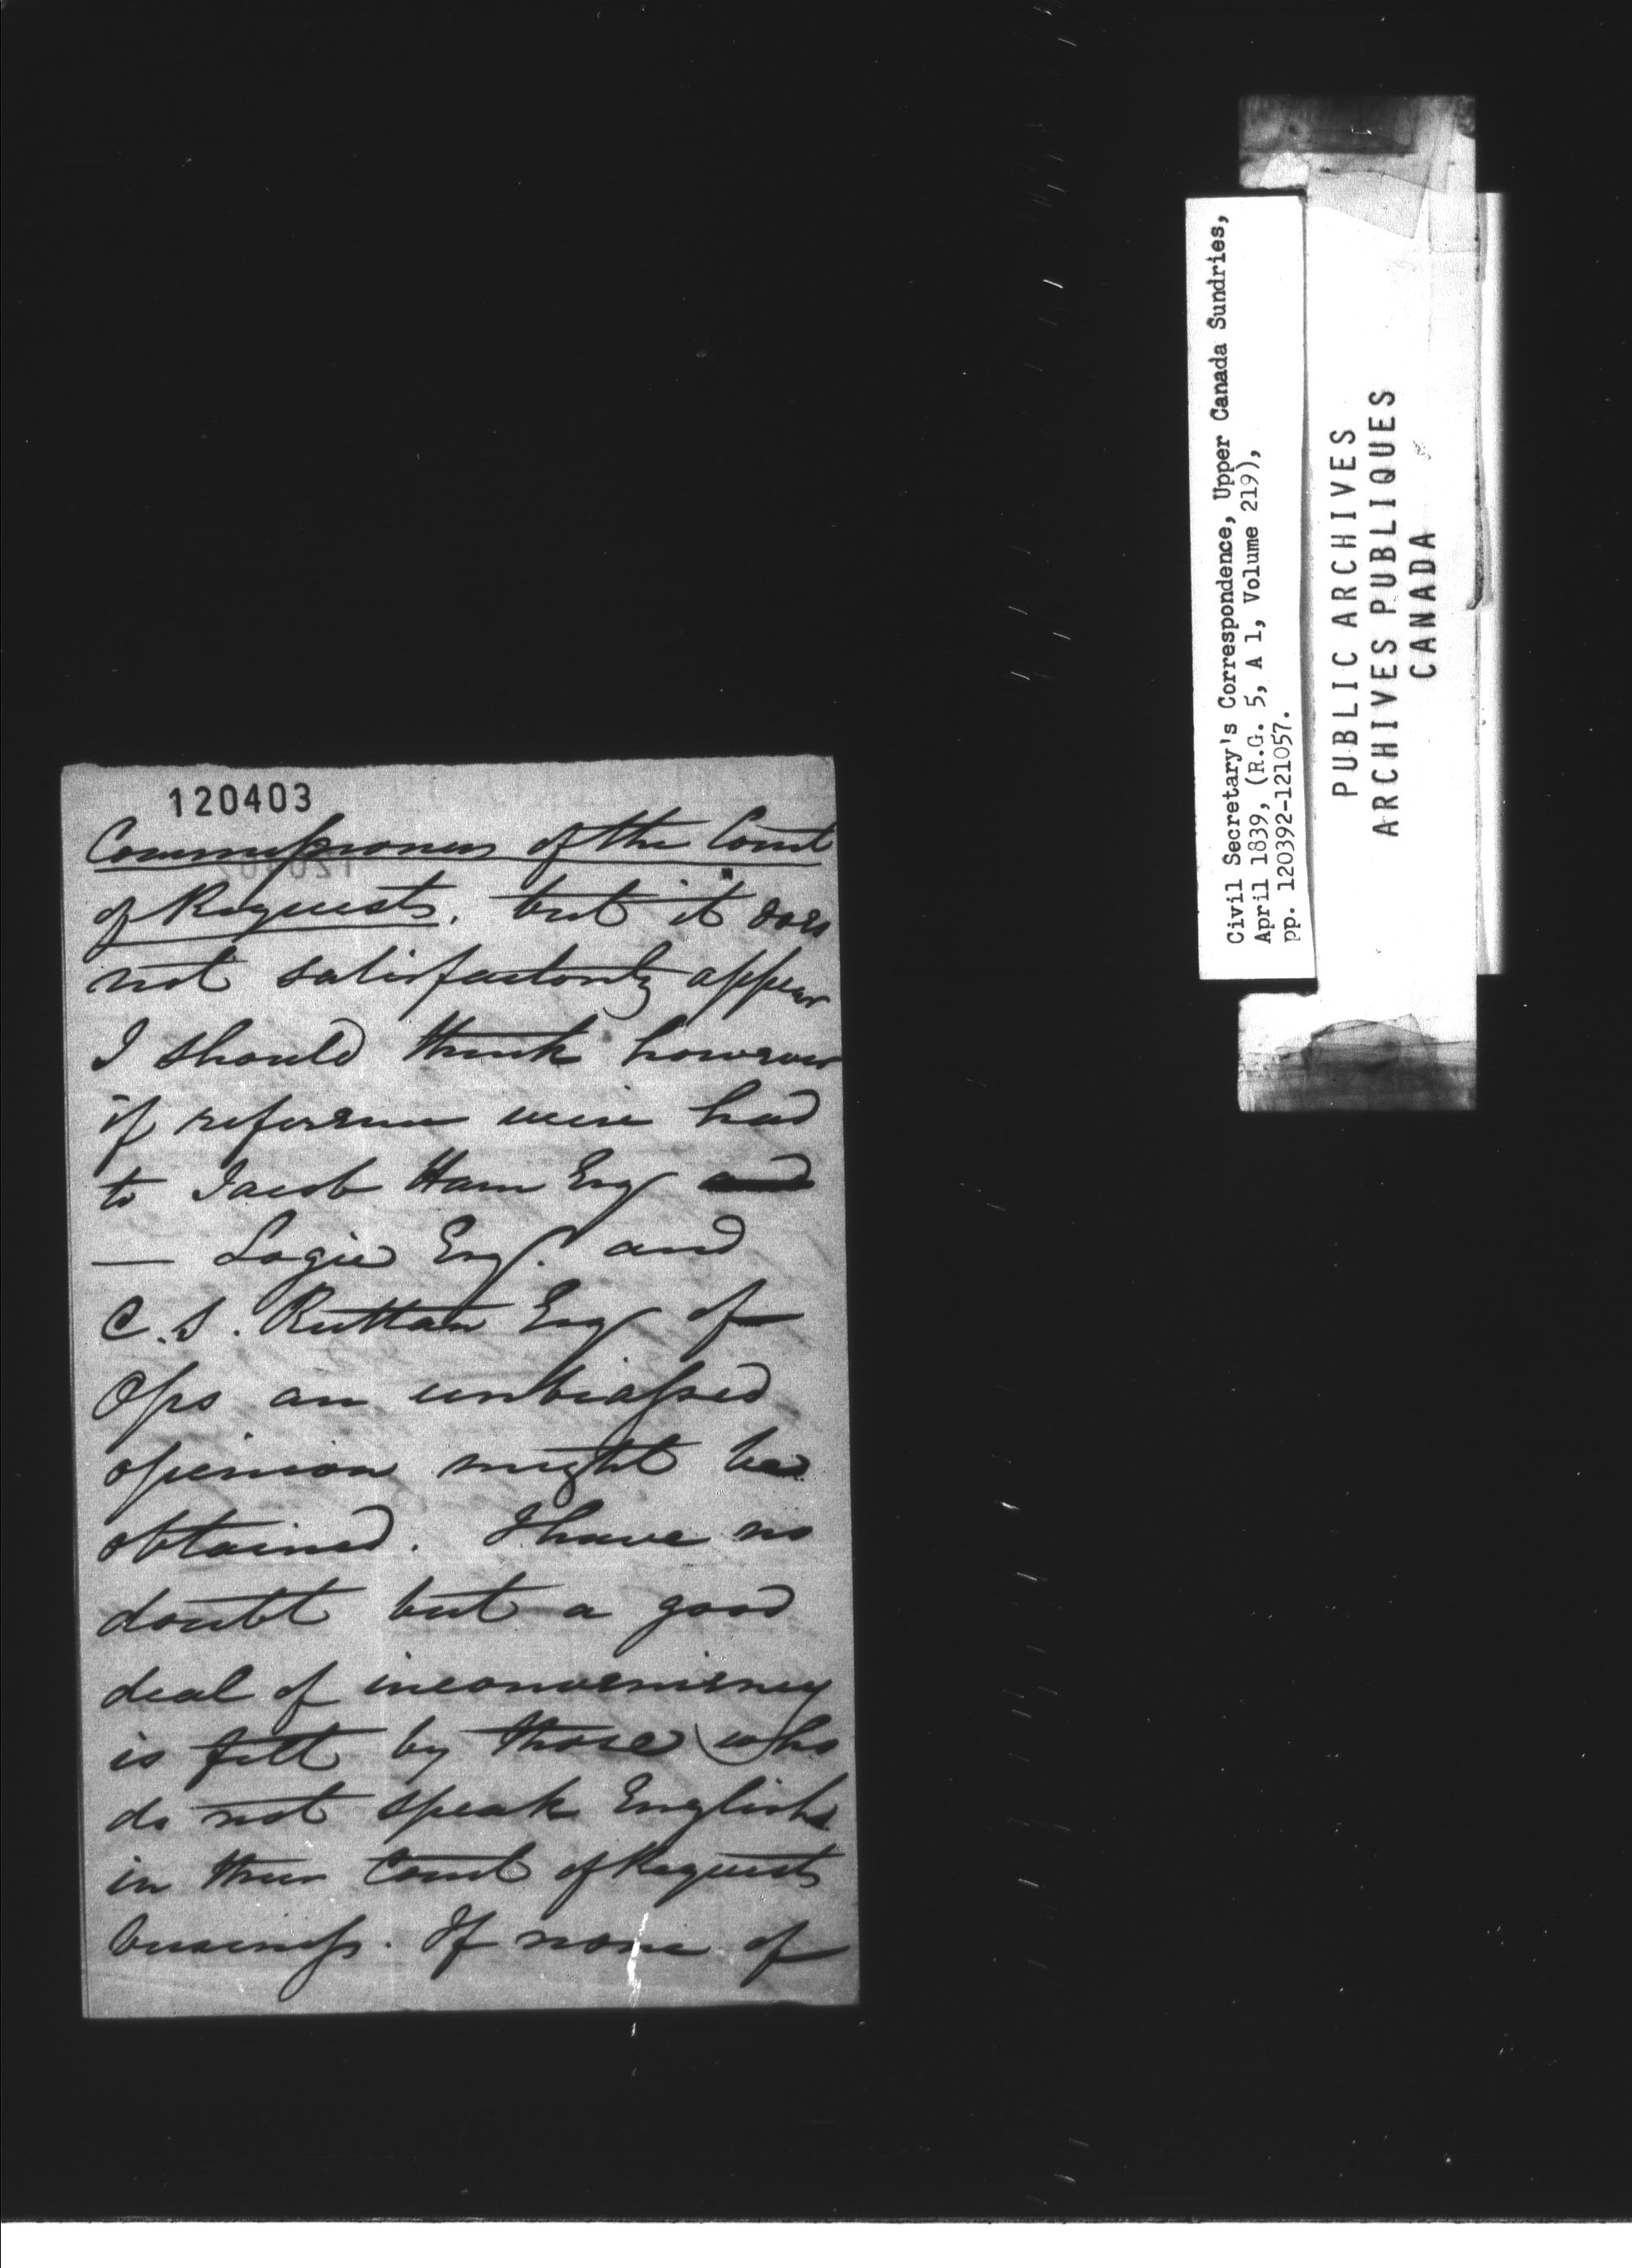 120403
Commissioners of the Court
of Requests. but it does
not satisfactorily appear
I should think however
if reference were had
to Jacob Ham Esq and
— Logie Esq. and
C. S. Ruttan Esq of
Ops an unbiassed
opinion might be
obtained. I have no
doubt but a good
deal of inconveniency
is felt by those who
do not speak English
in their Court of Requests
business. If none of
Civil Secretary's Correspondence, Upper Canada Sundries,
April 1839, (R.G. 5, A 1, Volume 219),
pp. 120392-121057.
PUBLIC ARCHIVES
ARCHIVES PUBLIQUES
CANADA